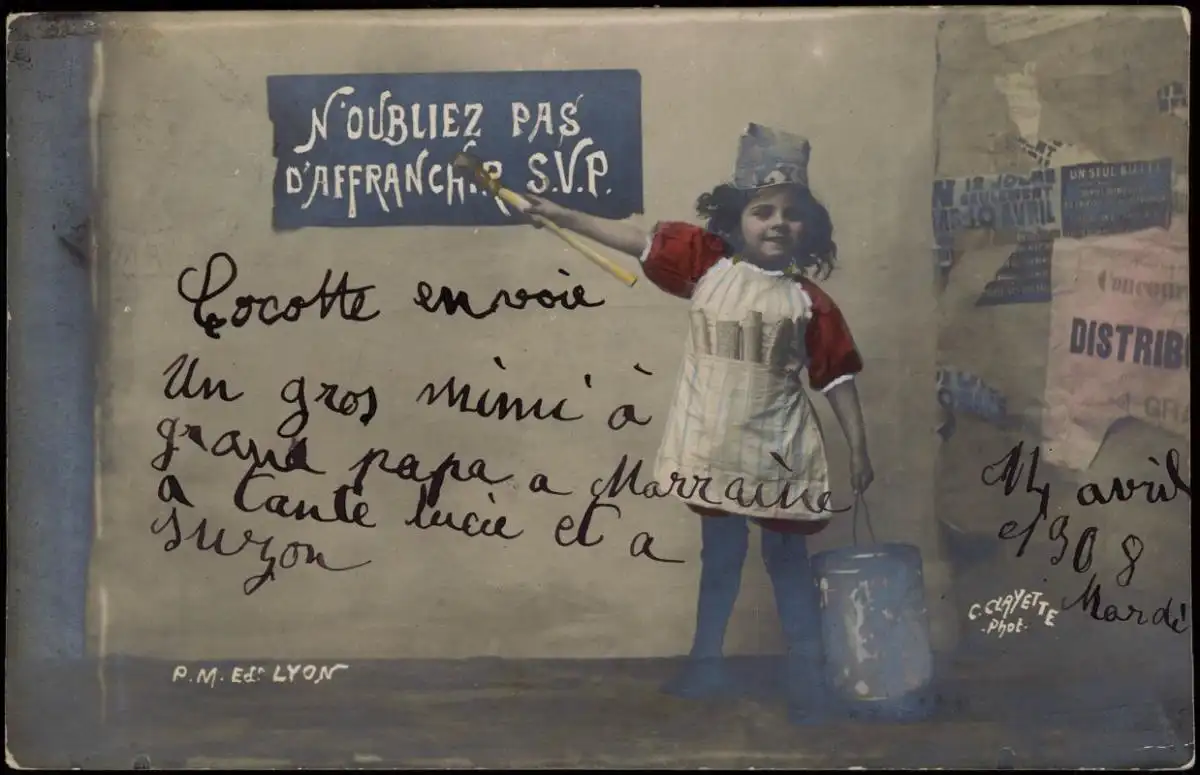 N'OUBLIEZ PAS
D'AFFRANCHIR S.V.P.
Cocotte envoie
Un gros mimi à
grand papa a Marraine
a tante lucie et a
Suzon
14 avril
1908
Mardi
UN SEUL
AVRIL
Concour
DISTRIB
GRA
C. CLAYETTE
Phot.
P.M. Edr. LYON